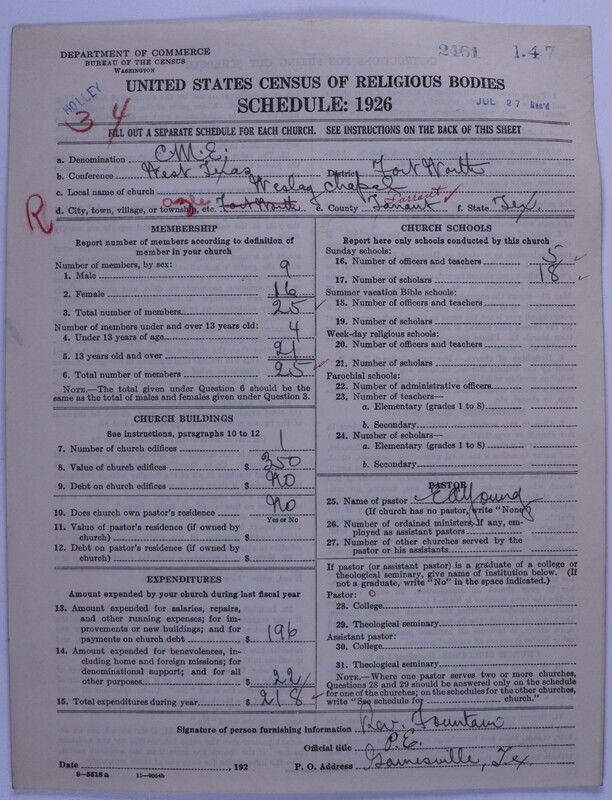 DEPARTMENT OF COMMERCE
BUREAU OF THE CENSUS
WASHINGTON
2461 1-47
UNITED STATES CENSUS OF RELIGIOUS BODIES
SCHEDULE: 1926
HOLLEY
34
JUL 27 Rec'd
FILL OUT A SEPARATE SCHEDULE FOR EACH CHURCH. SEE INSTRUCTIONS ON THE BACK OF THIS SHEET
a. Denomination C.M.E.
b. Conference West Texas District Fort Worth
c. Local name of church Wesley Chapel
R d. City, town, village, or township, etc. azle Fort Worth e. County Tarrant Tarrant f. State Tex.
MEMBERSHIP
Report number of members according to definition of member in your church
Number of members, by sex:
1. Male 9
2. Female 16
3. Total number of members 25
Number of members under and over 13 years old:
4. Under 13 years of age 4
5. 13 years old and over 21
6. Total number of members 25
NOTE.—The total given under Question 6 should be the same as the total of males and females given under Question 3.
CHURCH BUILDINGS
See instructions, paragraphs 10 to 12
7. Number of church edifices 1
8. Value of church edifices $ 350
9. Debt on church edifices $ No
10. Does church own pastor's residence No
Yes or No
11. Value of pastor's residence (if owned by church) $
12. Debt on pastor's residence (if owned by church) $
EXPENDITURES
Amount expended by your church during last fiscal year
13. Amount expended for salaries, repairs, and other running expenses; for improvements or new buildings; and for payments on church debt $ 196
14. Amount expended for benevolences, including home and foreign missions; for denominational support; and for all other purposes $ 22
15. Total expenditures during year $ 218
CHURCH SCHOOLS
Report here only schools conducted by this church
Sunday schools:
16. Number of officers and teachers 5
17. Number of scholars 18
Summer vacation Bible schools:
18. Number of officers and teachers
19. Number of scholars
Week-day religious schools:
20. Number of officers and teachers
21. Number of scholars
Parochial schools:
22. Number of administrative officers
23. Number of teachers—
a. Elementary (grades 1 to 8)
b. Secondary
24. Number of scholars—
a. Elementary (grades 1 to 8)
b. Secondary
PASTOR
25. Name of pastor E A Young
(If church has no pastor, write "None")
26. Number of ordained ministers, if any, employed as assistant pastors
27. Number of other churches served by the pastor or his assistants
If pastor (or assistant pastor) is a graduate of a college or theological seminary, give name of institution below. (If not a graduate, write "No" in the space indicated.)
Pastor: 0
28. College
29. Theological seminary
Assistant pastor:
30. College
31. Theological seminary
NOTE.—Where one pastor serves two or more churches, Questions 28 and 29 should be answered only on the schedule for one of the churches; on the schedules for the other churches, write "See schedule for church."
Signature of person furnishing information Rev. Fountain
Official title P.E.
Date , 192 P. O. Address Gainesville, Tex
8—5518a 11—9024b